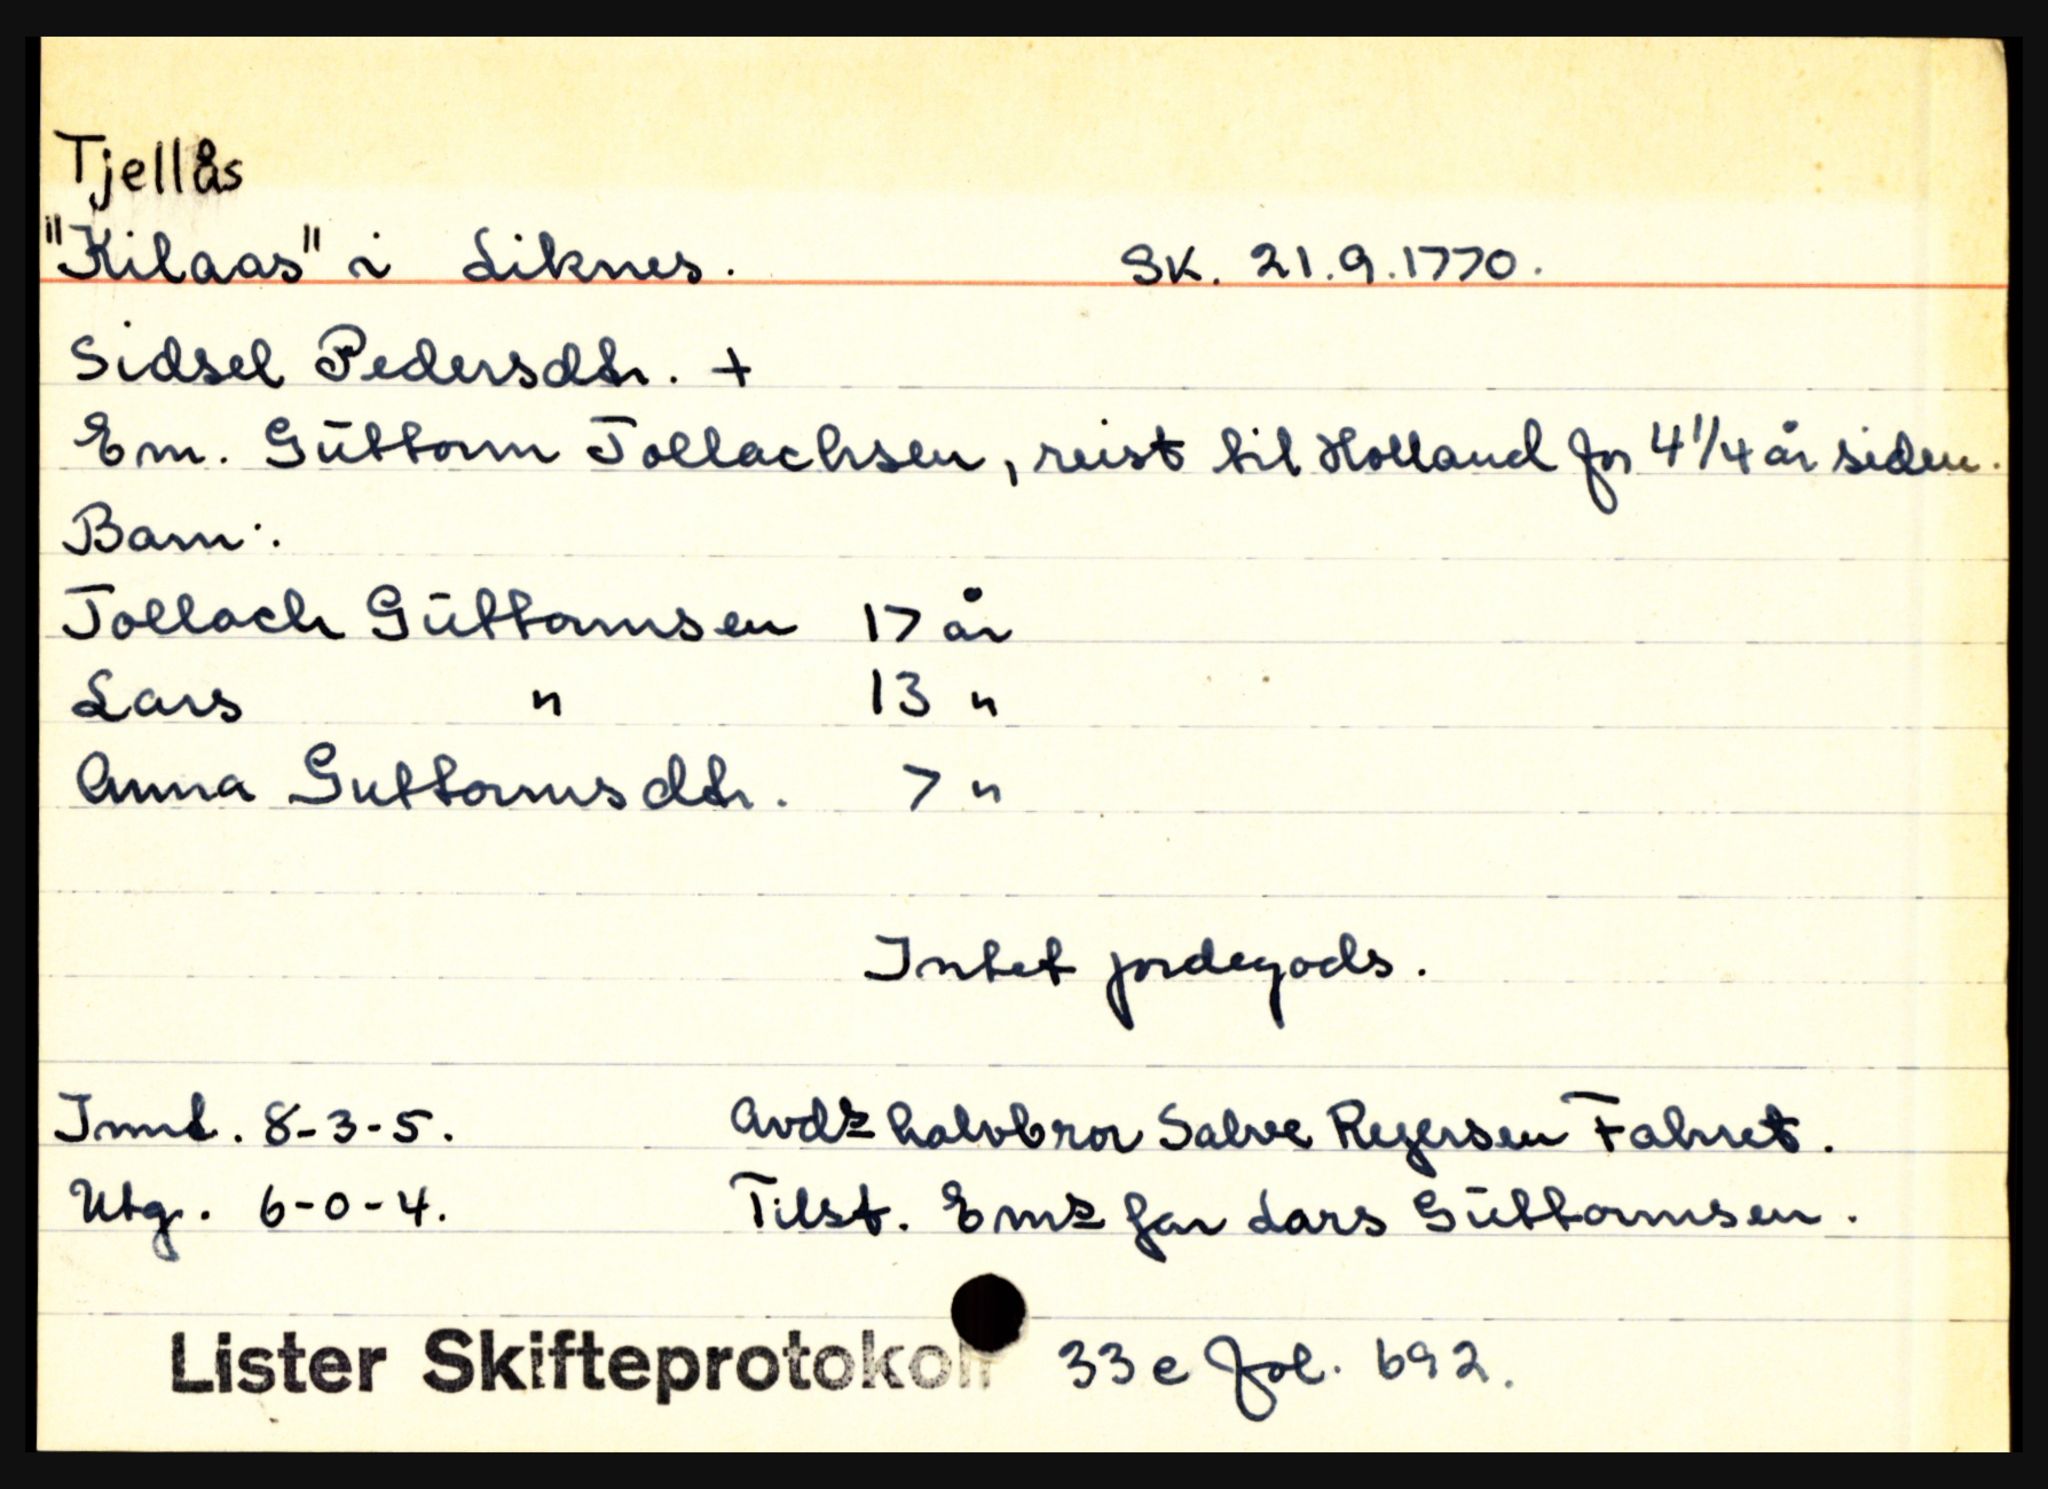 Tjellås
"Kilaas" i Liknes. SK. 21.9.1770.
Sidsel Pedersdtr. +
Em. Gŭttorm Tollachsen, reist til Holland for 4 1/4 år siden.
Barn:
Tollach Gŭttormsen 17 år
Lars " 13 "
Anna Guttormsdtr. 7 "
Intet jordegods.
Innt. 8-3-5. Avds halvbror Salve Regersen Fahret.
Utg. 6-0-4. Tilst. Ems far Lars Gŭttormsen.
Lister Skifteprotokoll 33c fol. 692.